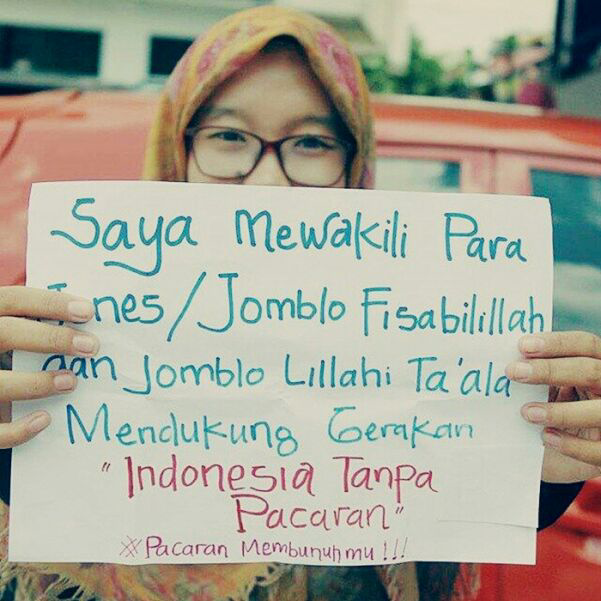 Saya Mewakili Para
Jones/Jomblo Fisabilillah
dan Jomblo Lillahi Ta'ala
Mendukung Gerakan
"Indonesia Tanpa
Pacaran"
※Pacaran Membunuhmu!!!